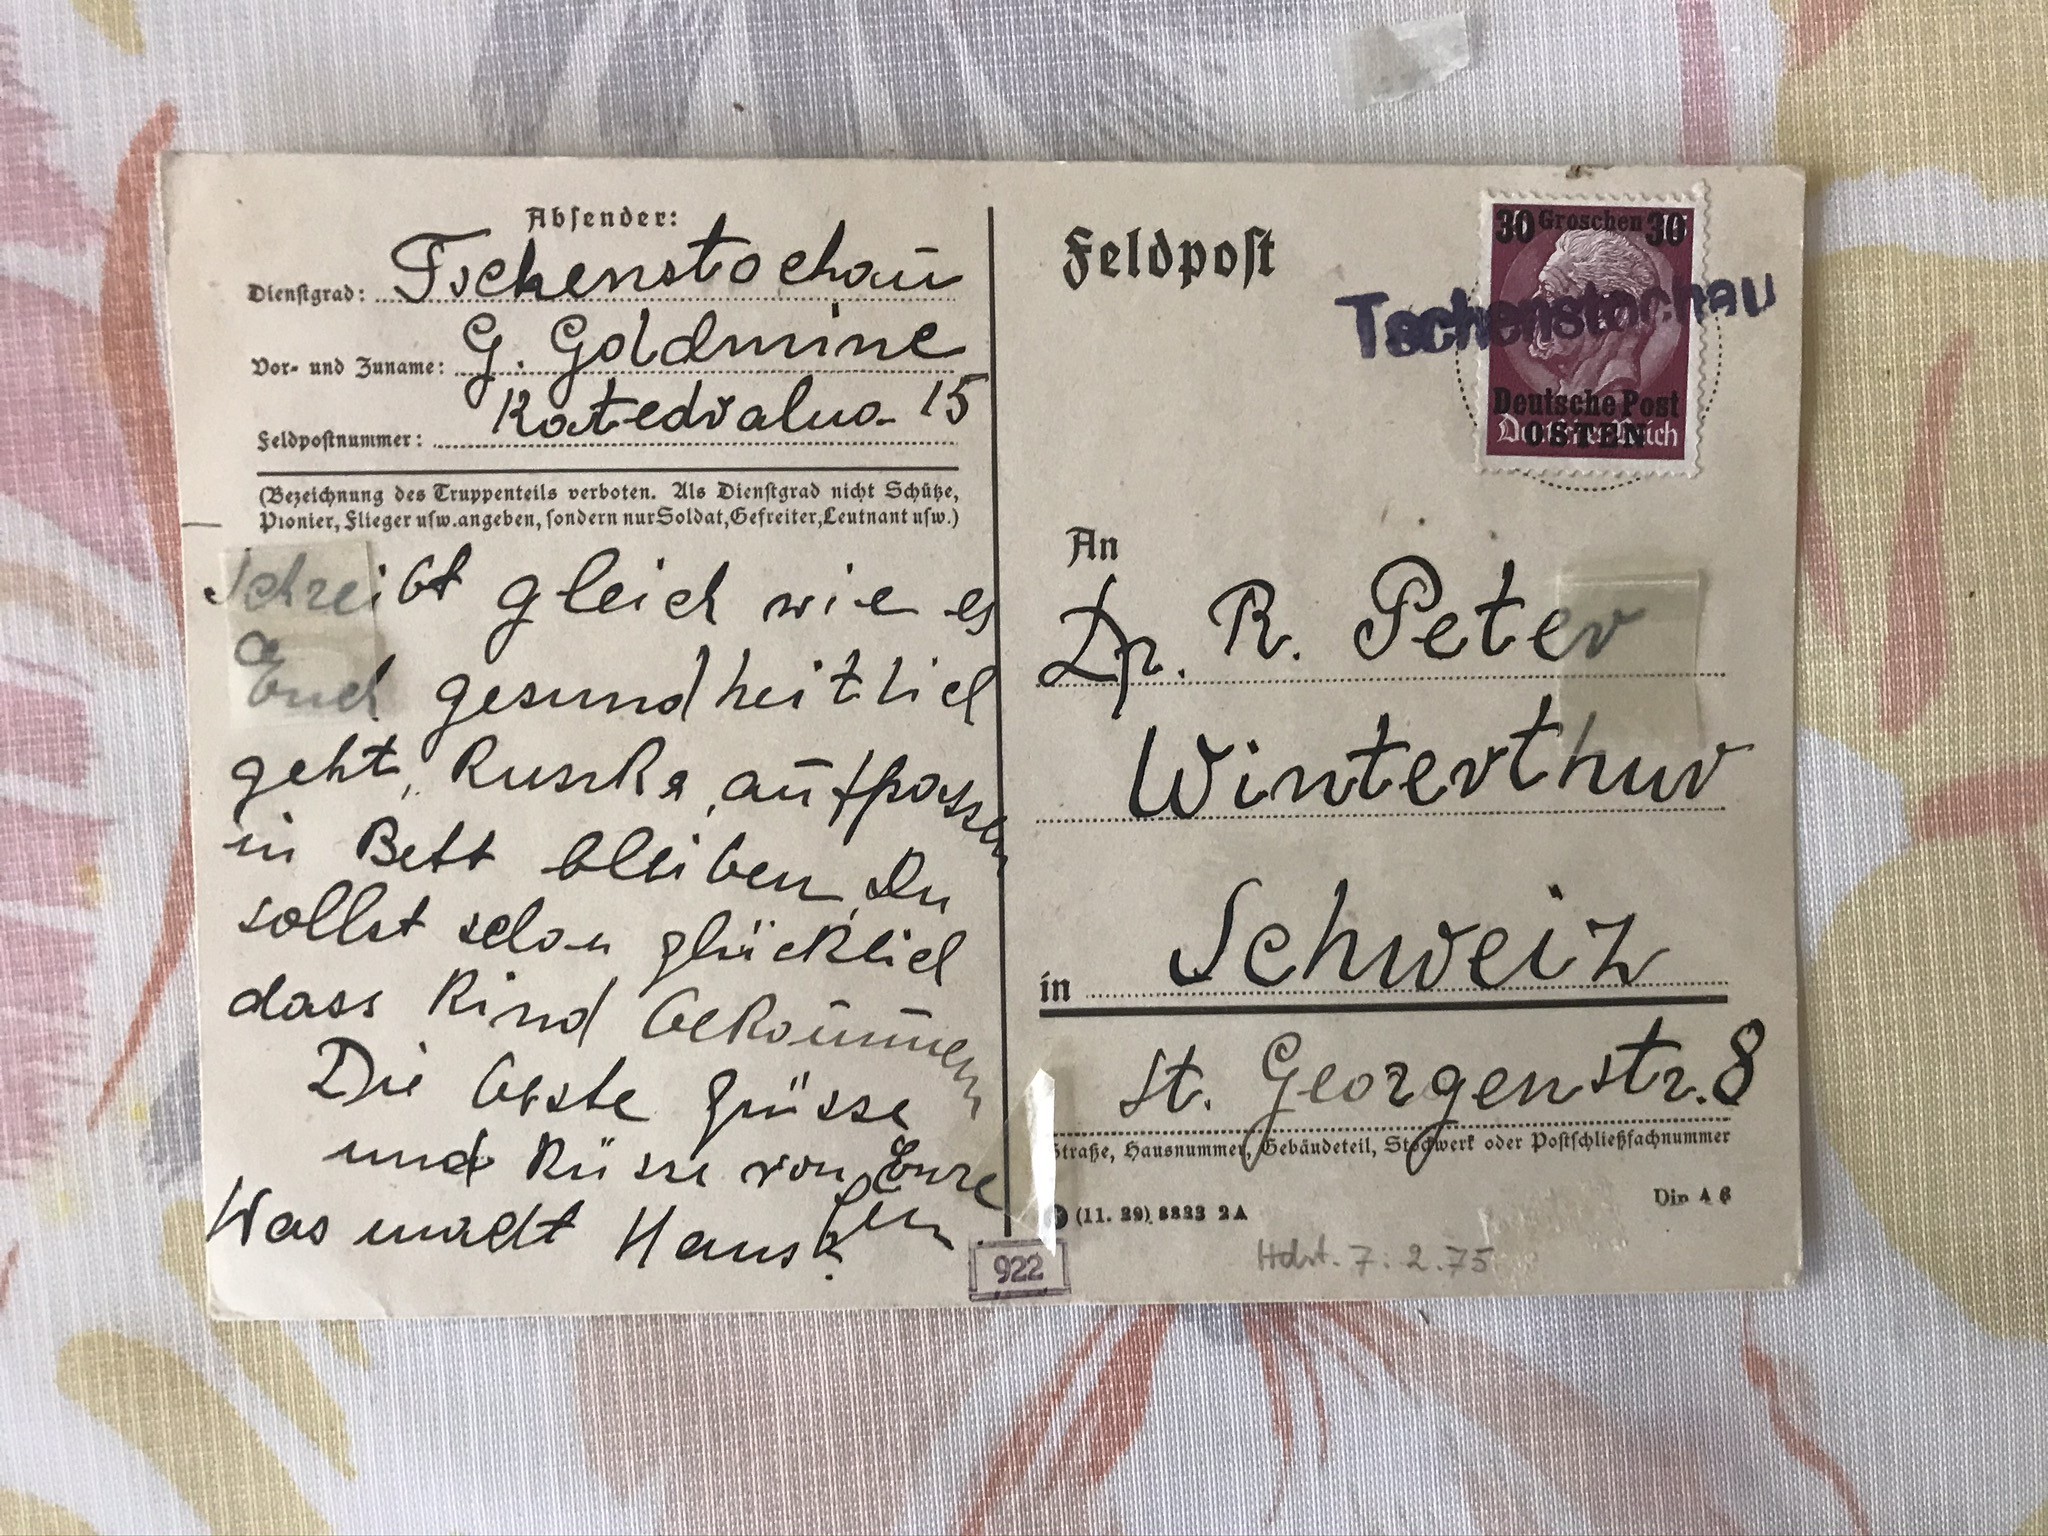 Absender:
Dienstgrad: Tschenstochau
Vor- und Zuname: G. Goldmine
Katedralna 15
Feldpostnummer:
(Bezeichnung des Truppenteils verboten. Als Dienstgrad nicht Schütze,
Pionier, Flieger usw. angeben, sondern nur Soldat, Gefreiter, Leutnant usw.)
Schreibt gleich wie es
Euch gesundheitlich
geht, aufpassen
in Bett bleiben, Du
sollst schon glücklich
dass Kind bekommen
Die beste Grüsse
und Küsse von Eure
Was macht Hans?
Feldpost
30 Groschen 30
Tschenstochau
Deutsche Post
OSTEN
Deutsches Reich
An
Dr. R. Peter
Winterthur
in Schweiz
St. Georgenstr. 8
Straße, Hausnummer, Gebäudeteil, Stockwerk oder Postschließfachnummer
(11. 39) 8833 2A
Din A 6
922
Hdst. 7.2.75